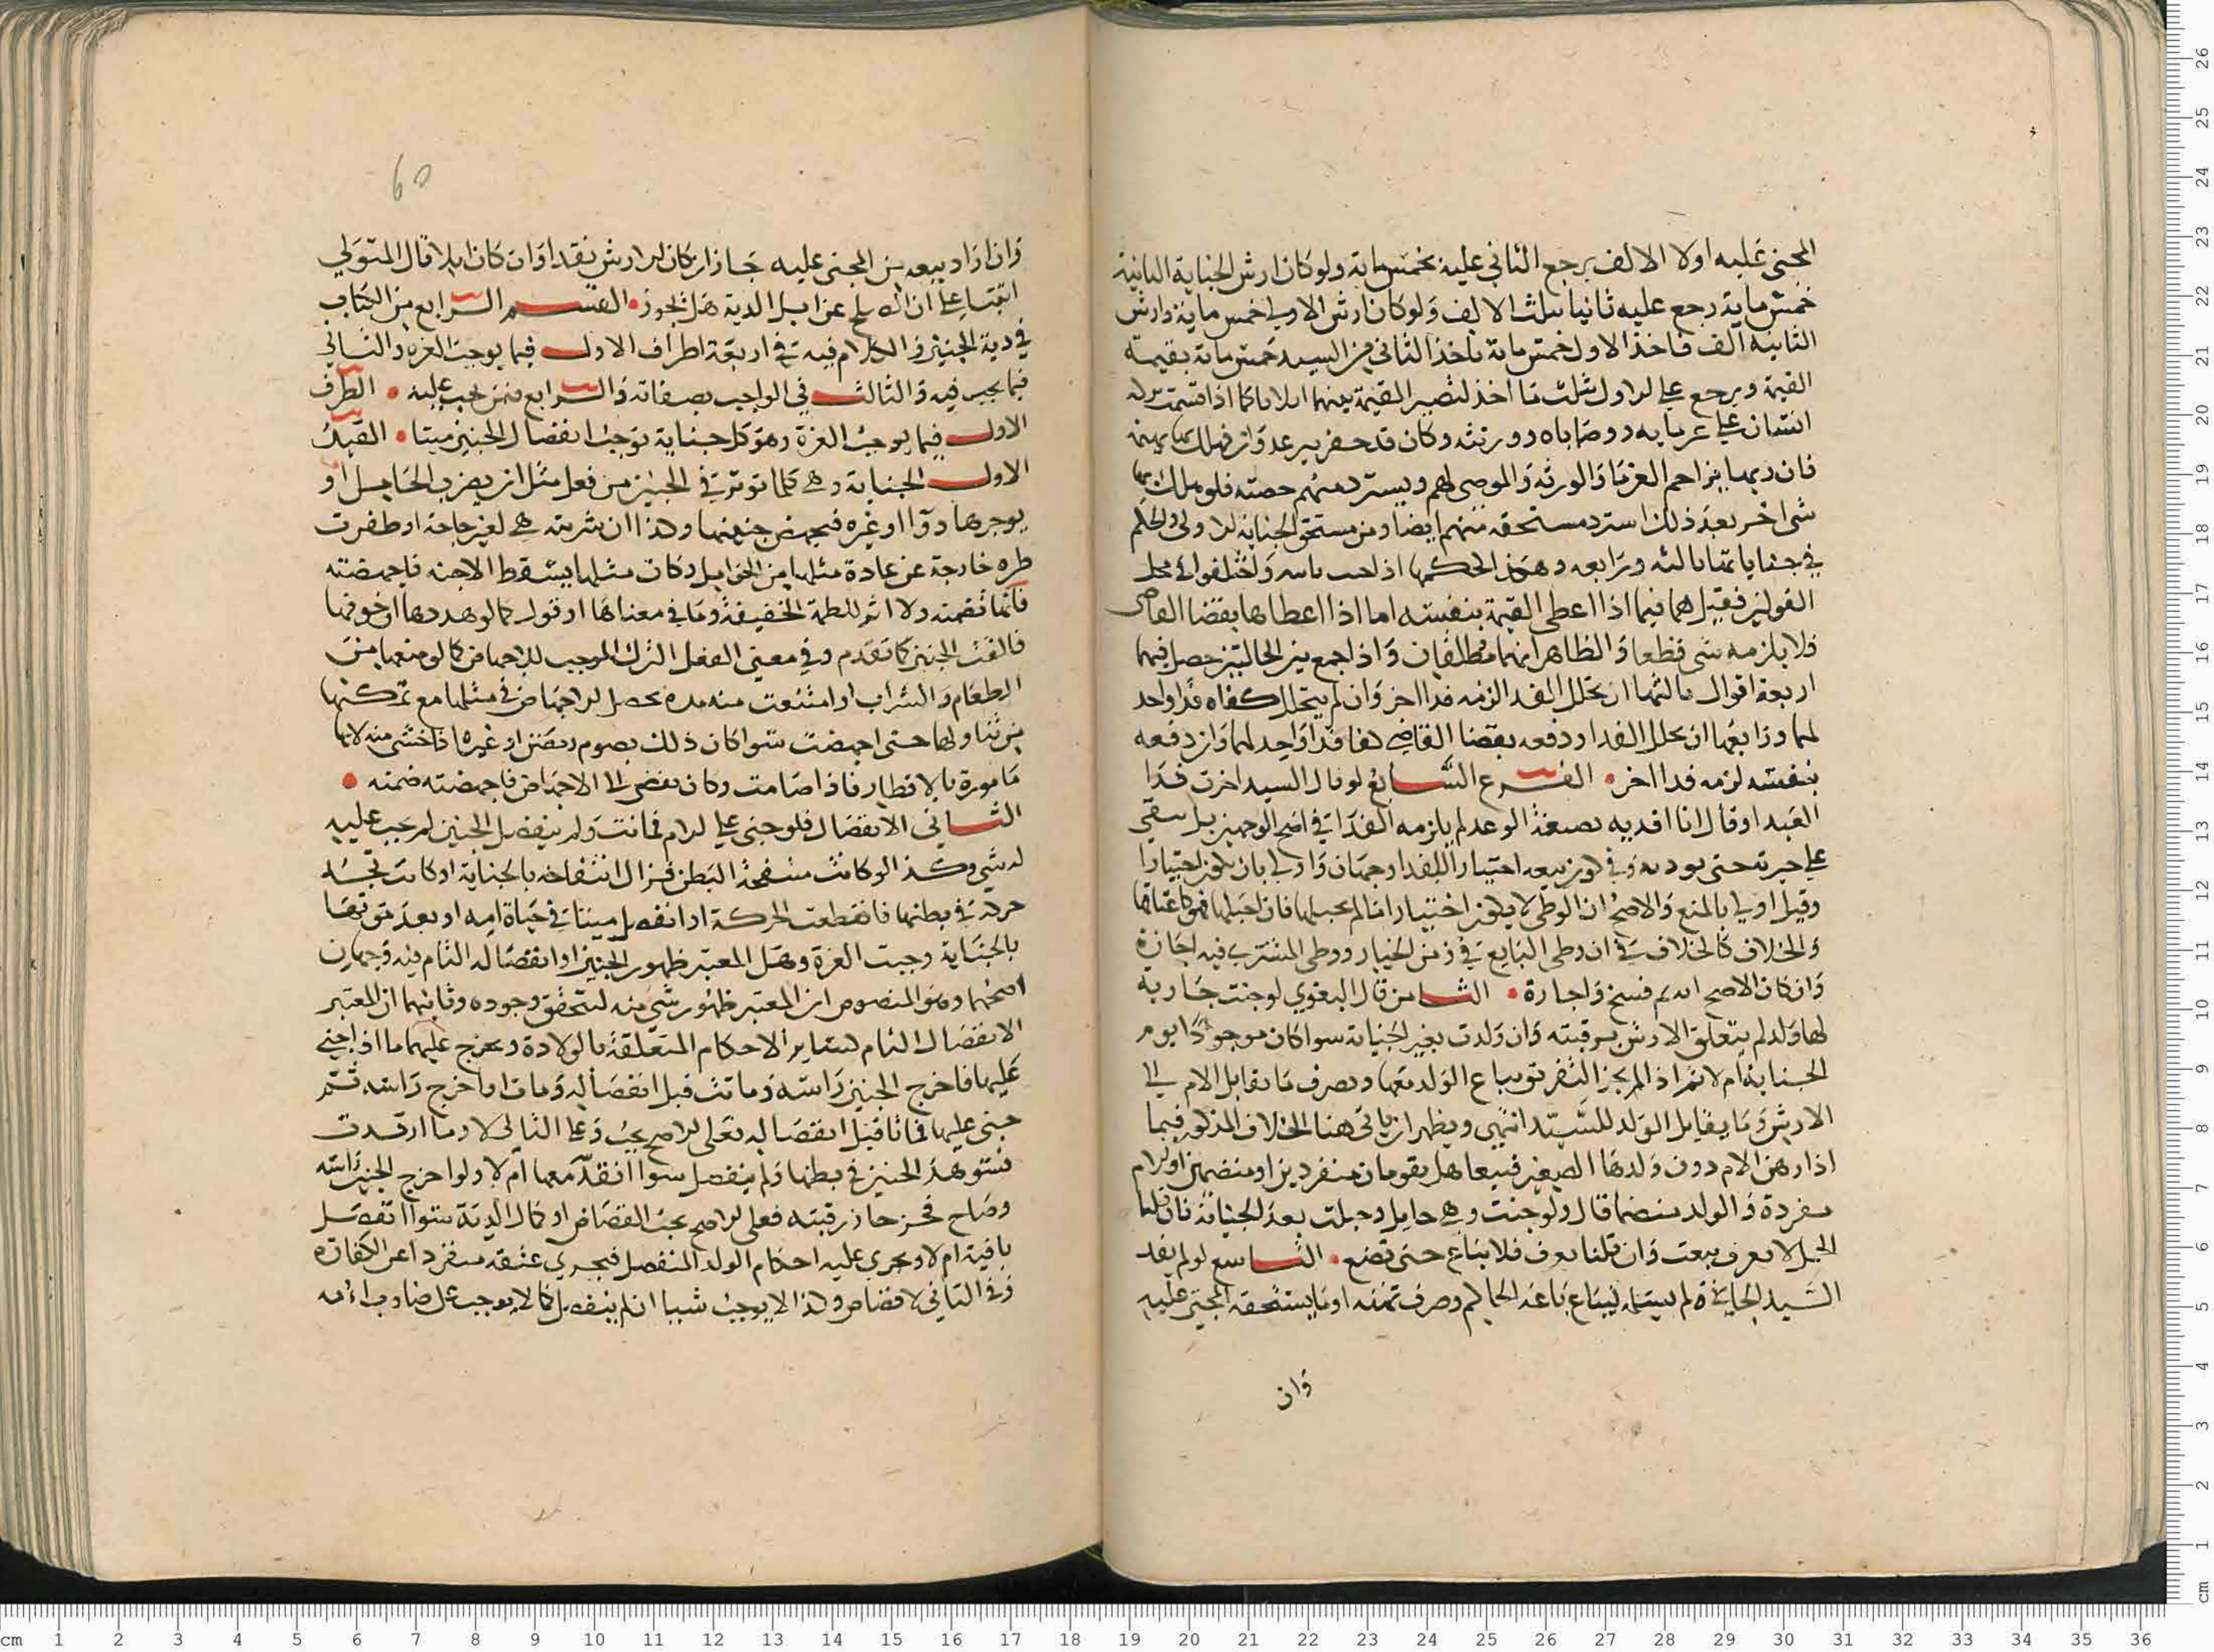 المجنى عليه اولا الالف يرجع الثانى عليه بخمس ماية ولو كان ارش الجناية الثانية
خمس ماية رجع عليه ثانيا بثلث الالف ولو كان ارش الاولى خمس ماية وارش
الثانية الف فاخذ الاول خمس ماية ياخذ الثانى من السيد خمس ماية بقيمة
القيمة ويرجع على الاول بثلث ما اخذ لتصير القيمة بينهما اثلاثا كما اذا قسمت تركة
انسان على غرمايه ووصاياه وورثته وكان قد حفر بير عدوان فهلك بها بهيمة
فان ربها يزاحم الغرما والورثة والموصى لهم ويسترد منهم حصته فلو هلك بها
شى اخر بعد ذلك استرد مستحقه منهم ايضا ومن مستحق الجناية الاولى والحكم
فى جنايات ثالثة ورابعة وهذا الحكم واختلفوا فى محل
القولين فقيل هما فيما اذا اعطى القيمة بنفسه اما اذا اعطاها بقضا القاضى
فلا يلزمه شى قطعا والظاهر انهما مطلقان واذا جمع بين الحالتين حصل فيهما
اربعة اقوال ثالثها ان تخلل الفدا لزمه فدا اخر وان لم يتخلل كفاه فدا واحد
لهما ورابعها ان تخلل الفدا ودفعه بقضا القاضى كفا فدا واحد لهما وان دفعه
بنفسه لزمه فدا اخر • الفرع السابع لو قال السيد اخترت فدا
العبد او قال انا افديه بصيغة الوعد لم يلزمه الفدا فى اصح الوجهين بل يبقى
على خيرته حتى يوديه وفى كون بيعه اختيارا للفدا وجهان واولى بان يكون اختيارا
وقيل اولى بالمنع والاصح ان الوطى لا يكون اختيارا ما لم يحبلها فان احبلها فهو كاعتاقها
والخلاف كالخلاف فى ان وطى البايع فى زمن الخيار ووطى المشترى فيه اجازة
وان كان الاصح انه ثم فسخ واجازة • الثامن قال البغوى لو جنت جارية
لها ولد لم يتعلق الارش برقبته وان ولدت بغير الجناية سوا كان موجودا يوم
الجناية ام لا ثم اذا لم يجز التفريق يباع الولد معها ويصرف ما يقابل الام الى
الارش وما يقابل الولد للسيد انتهى ويظهر ان ياتى هنا الخلاف المذكور فيما
اذا رهن الام دون ولدها الصغير فبيعا هل يقومان منفردين او منضمين او الام
مفردة والولد منضما قال ولو جنت وهى حامل وحبلت بعد الجناية فان قلنا
الحمل لا يعرف بيعت وان قلنا يعرف فلا يباع حتى تضع • التاسع لو لم يفد
السيد الجانى ولم يسلمه ليباع باعه الحاكم وصرف ثمنه او ما يستحقه المجنى عليه
وان
60
وان اراد بيعه من المجنى عليه جاز ان كان الارش نقدا وان كان ابلا قال المتولى
ابتنا على ان الصلح عن ابل الدية هل يجوز • القسم الرابع من الكتاب
فى دية الجنين والكلام فيه فى اربعة اطراف الاول فيما يوجب الغرة والثانى
فيما يجب فيه والثالث فى الواجب بصفاته والرابع فيمن يجب عليه • الطرف
الاول فيما يوجب الغرة وهو كل جناية توجب انفصال الجنين ميتا • القيد
الاول الجناية وهى كلما توثر فى الجنين من فعل مثل ان يضرب الحامل او
يوجرها دوا او غيره فتجهض جنينها وكذا ان شربته هى لغير حاجة او طفرت
طفره خارجة عن عادة مثلها من الحوامل وكان مثلها يسقط الاجنه فاجهضته
فانها تضمنه ولا اثر للطمة الخفيفة وما فى معناها او قول كما لو هددها او خوفها
فالقت الجنين كما تقدم وفى معنى الفعل الترك الموجب للاجهاض كما لو منعها من
الطعام والشراب او امتنعت منه مدة يحصل الاجهاض فى مثلها مع تمكنها
من تناولها حتى اجهضت سوا كان ذلك بصوم رمضان او غيره اذا خشى منه لانها
مامورة بالافطار فاذا صامت وكان يفضى الى الاجهاض فاجهضته ضمنته •
الثانى الانفصال فلو جنى على الام فماتت ولم ينفصل الجنين لم يجب عليه
له شى وكذا لو كانت منتفخة البطن فزال انتفاخه بالجناية او كانت تجد
حركة فى بطنها فانقطعت الحركة او انفصل ميتا فى حياة امه او بعد موتها
بالجناية وجبت الغرة وهل المعتبر ظهور الجنين او انفصاله التام فيه وجهان
اصحهما وهو المنصوص ان المعتبر ظهور شى منه لتحقق وجوده وثانيهما ان المعتبر
الانفصال التام كساير الاحكام المتعلقة بالولادة ويخرج عليهما ما اذا جنى
عليها فاخرج الجنين راسه وماتت قبل انفصاله ومات او اخرج راسه ثم
جنى عليها فماتا قبل انفصاله فعلى الاصح يجب وعلى الثانى لا وما ارقدت
فستوهد الجنين فى بطنها ولم ينفصل سوا انقد معها ام لا ولو اخرج الجنين راسه
وصاح فحز حاز رقبته فعلى الاصح يجب القصاص او كمال الدية سوا انفصل
باقيه ام لا ويجرى عليه احكام الولد المنفصل فيجرى عتقه منفردا عن الكفارة
وفى الثانى لا قصاص وكذا لا يوجب شيا ان لم ينفصل كما لا يوجب